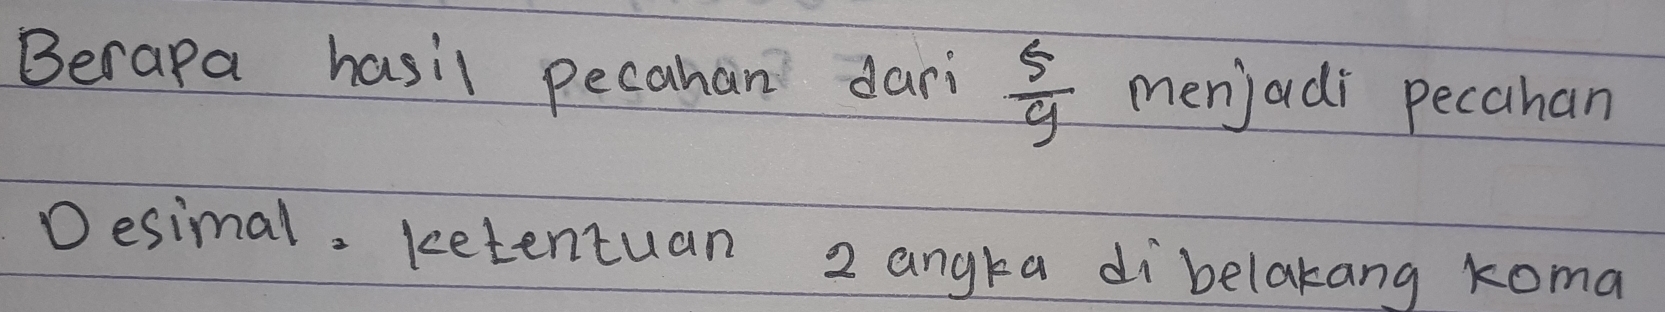 Berapa hasil pecahan dari 5/9 menjadi pecahan
Desimal. ketentuan 2 angka di belakang koma